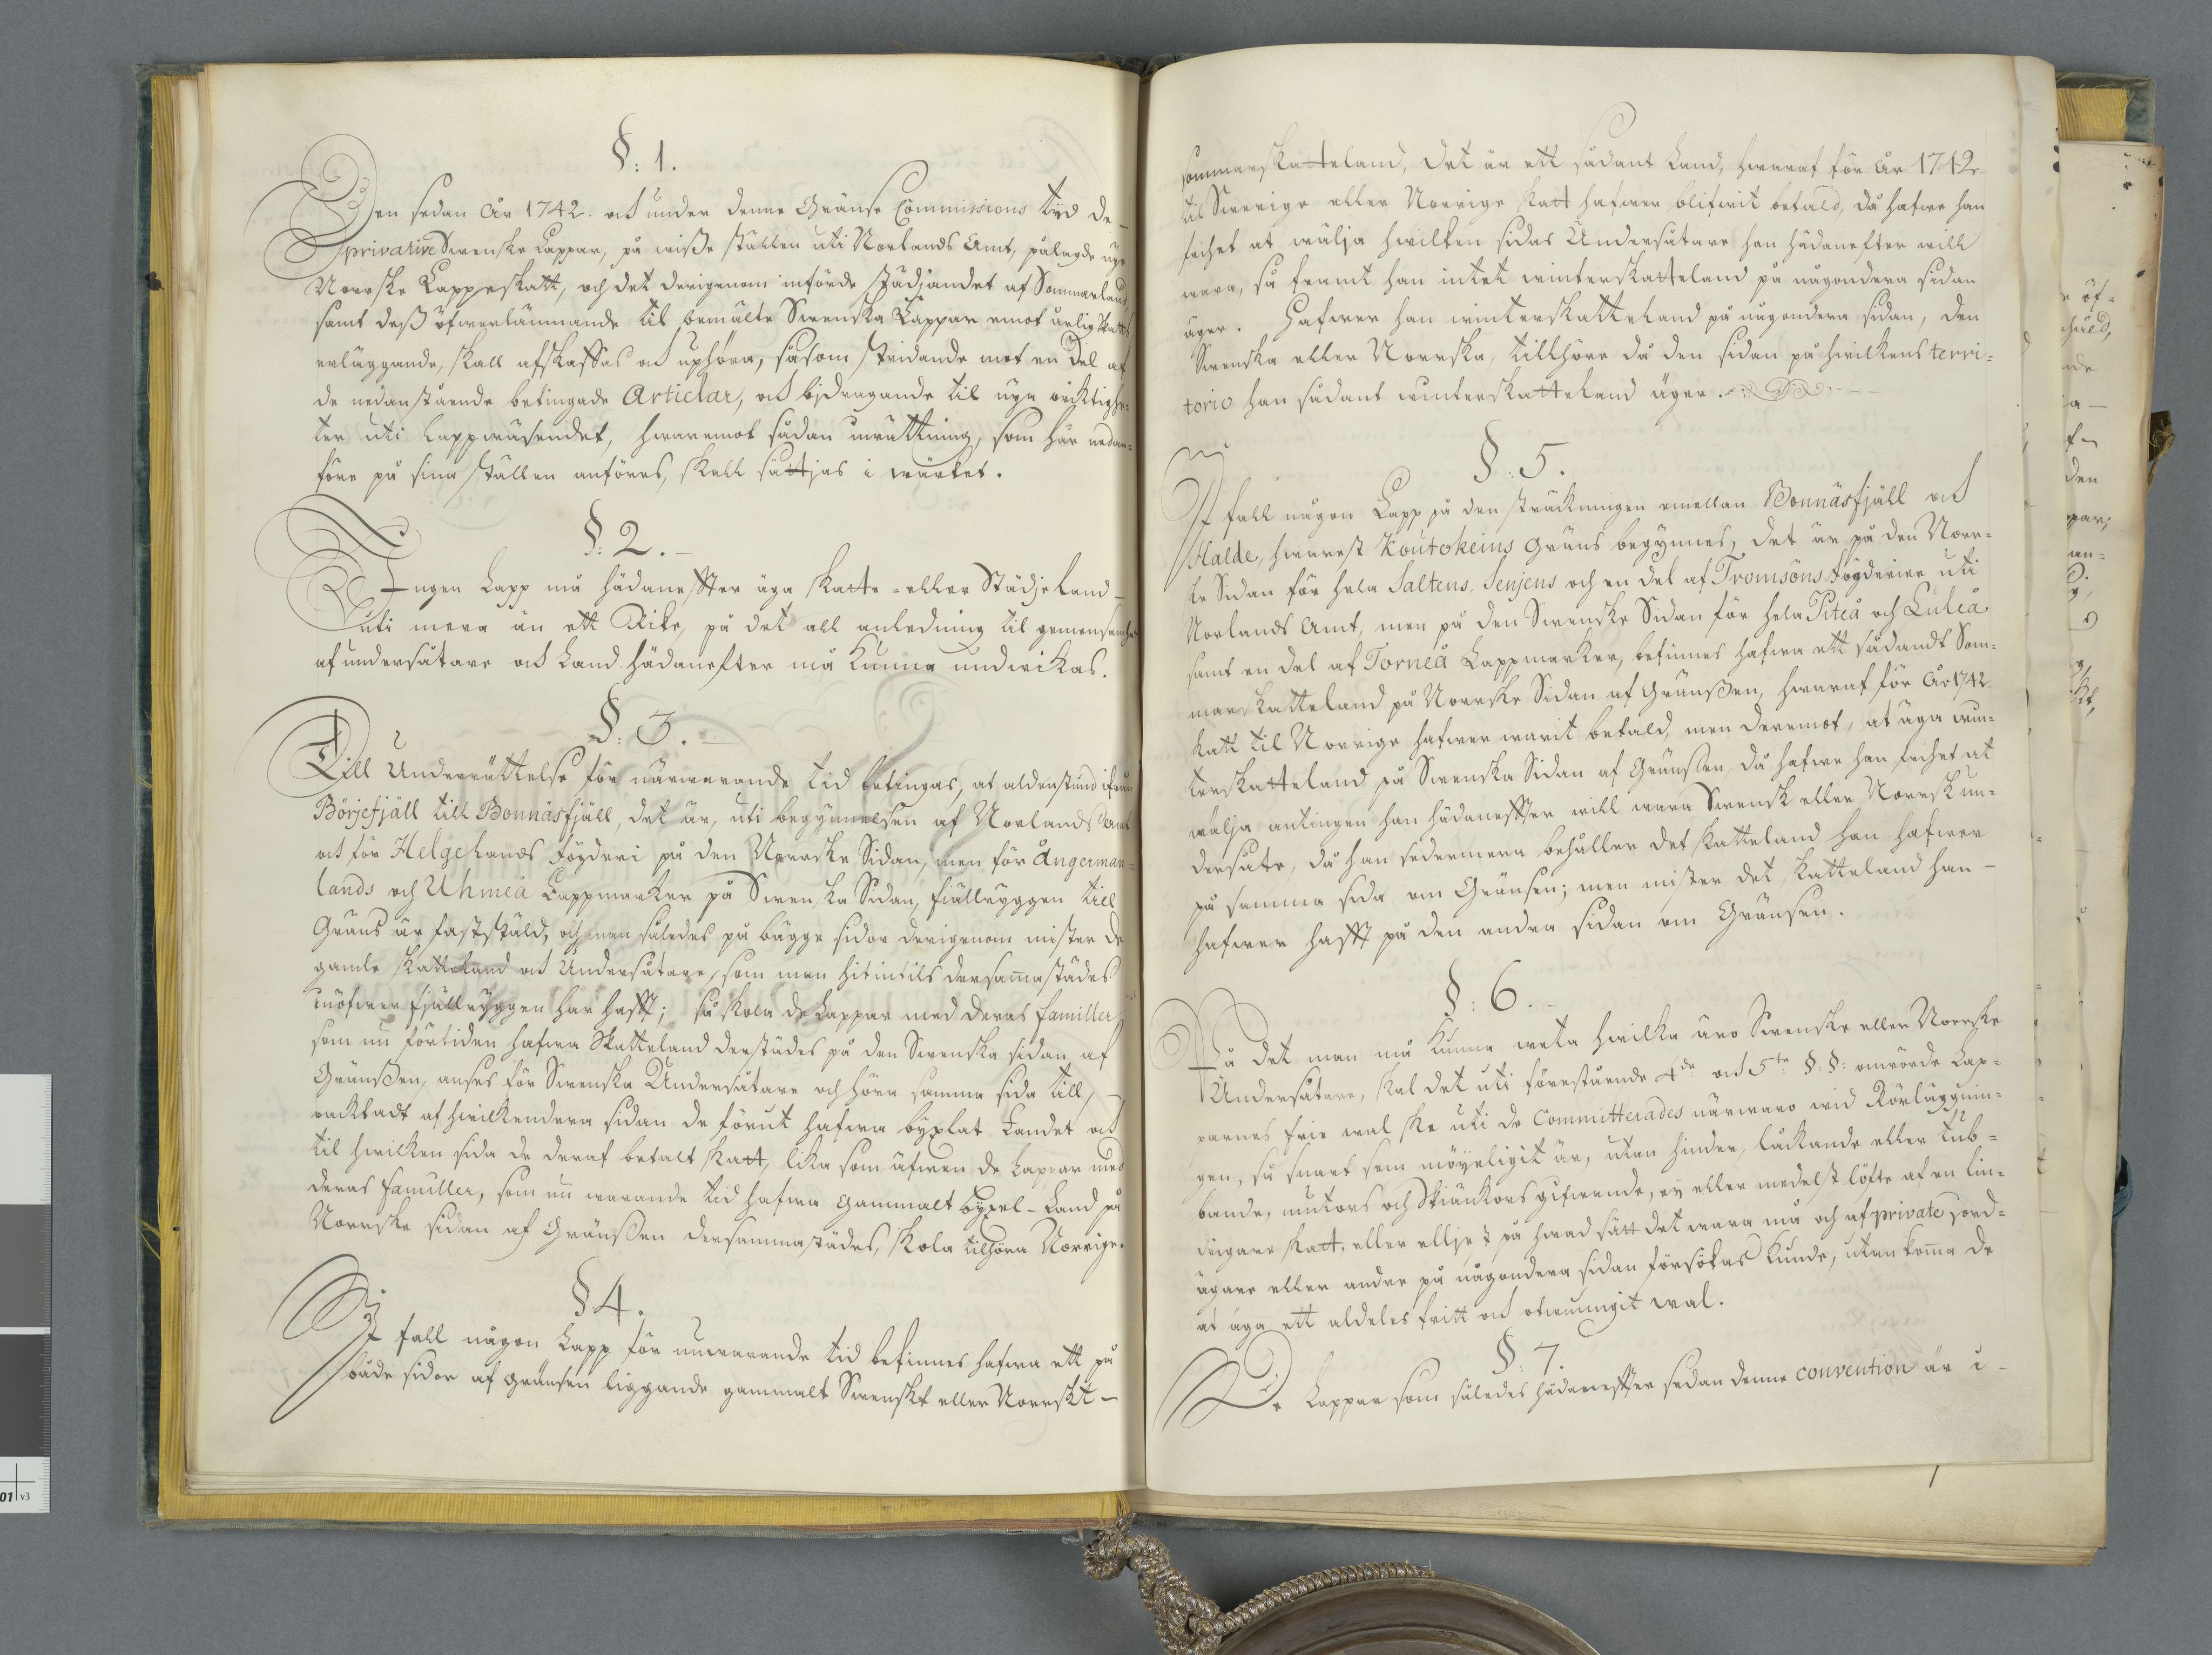 §: 1.
Den sedan År 1742. och under denne Gränse Commissions tyd de
privative Swenske Lappar, på wiße ställen uti Norlands Amt, pålagde nye
Norrske Lappeskatt, och det derigenom införde städjandet af Sommarland
samt deß öfwerlämnande til bemälte Swenska Lappar emot årlig Skatts
erläggande, skall afskaffas och uphöra, såsom stridande mot en del af
de nedanstående betingade Articlar, och bidragande til nya oriktighe-
ter uti Lappwäsendet, hwaremot sådan inrättning, som här nedan-
före på sina ställen anföres, skall sättjas i wärket.
§: 2.
Ingen Lapp må hädaneffter äga skatte- eller Städjeland
uti mera än ett Rike, på det all anledning til gemensamhet
af undersåtare och Land hädanefter må kunna undwikas.
§: 3.
Till Underrättelse för närwarande tid betingas, at aldenstund ifrån
Börjefjäll till Bonnäsfjäll, det är, uti begynnelsen af Norlands Amt
och för Helgelands Fögderi på den Norrske Sidan, men för Ångerman-
lands och Uhmeå Lappmarker på Swenska Sidan, fiällryggen till
Gräns är fastställd, och man således på bägge sidor derigenom mister de
gamle Skatteland och Undersåtare, som man hitintils dersam̃astädes
inöfwer fjällryggen har hafft; så skola de Lappar med deras familler
som nu förtiden hafwa Skatteland derstädes på den Swenska sidan af
Gränßen, anses för Swenska Undersåtare och höra samma sida till,
oacktadt af hwilkendera sidan de förut hafwa byxlat Landet och
til hwilken sida de deraf betalt skatt, lika som äfwen de Lappar med
deras familler, som nu warande tid hafwa gammalt byxel-Land på
Norrske sidan af Gränßen dersammastädes, skola tilhöra Norrige.
§ 4.
If fall någon Lapp för nuwarande tid befinnes hafwa ett på
både sidor af gränsen liggande gammalt Swenskt eller Norrskt
sommarskatteland, det är ett sådant Land, hwaraf för År 1742
til Swerige eller Norrige skatt hafwer blifwit betald, då hafwe han
frihet at wälja hwilken sidas Undersåtare han hädanefter will
wara, så framt han intet winterskatteland på någondera sidan
äger. Hafwer han winterskatteland på någondera sidan, den
Swenska eller Norrska, tillhöre då den sidan på hwilkens terri-
torio han sådant winterskatteland äger.
§: 5.
If fall någon Lapp på den sträckningen emellan Bonnäsfjäll och
Halde, hwarest Koutokeins Gräns begynnes, det är på den Norr-
ske Sidan för hela Saltens, Senjens och en del af Tromsöns Fögderier uti
Norlands Amt, men på den Swenske Sidan för hela Piteå och Luleå
samt en del af Torneå Lappmarker, befinnes hafwa ett sådandt Som-
marskatteland på Norrske Sidan af Gränßen, hwaraf för År 1742
skatt til Norrige hafwer warit betald, men deremot, at äga win-
terskatteland på Swenska Sidan af Gränßen, då hafwe han frihet at
wälja antingen han hädaneffter will wara Swensk eller Norrsk un-
dersåte, då han sedermera behåller det skatteland han hafwer
på samma sida om Gränsen; men mister det skatteland han
hafwer hafft på den andra sidan om Gränsen.
§: 6.
På det man må kunna weta hwilka äro Swenske eller Norrske
Undersåtare, skal det uti förestående 4de och 5te §.§: omrörde Lap-
parnes frie wal ske uti de Committerades närwaro wid Rörläggnin-
gen, så snart som möyeligit är, utan hinder, låckande eller tub-
bande, mutors och Skiänkors gifwande, ey eller medelst löfte af en lin-
drigare skatt, eller elljest på hwad sätt det wara må och af private jord-
ägare eller andre på någondera sidan försökas kunde, utan kom̃a de
at äga ett aldeles fritt och otwungit wal.
§: 7.
De Lappar som således hädaneffter sedan denne convention är i